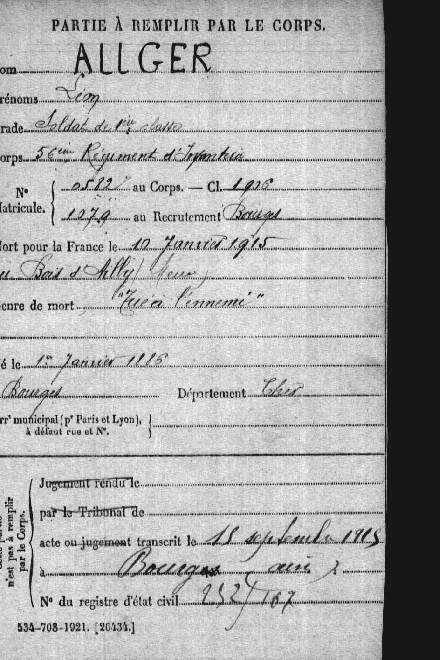 PARTIE À REMPLIR PAR LE CORPS.
om ALLGER
rénoms Léon
rade Soldat de 1re classe
orps 56em Régiment d'Infanterie
N° 05827 au Corps. — Cl. 1906
atricule. 1279 au Recrutement Bourges
ort pour la France le 10 Janvier 1915
au Bois d'Ailly (Meuse)
enre de mort "Tué à l'ennemi"
é le 1er Janvier 1886
Bourges Département Cher
rr' municipal (pr Paris et Lyon),
à défaut rue et N°.
n'est pas à remplir
par le Corps.
Jugement rendu le
par le Tribunal de
acte ou jugement transcrit le 18 septembre 1915
à Bourges
N° du registre d'état civil 252/167
534-708-1921. [26434.]